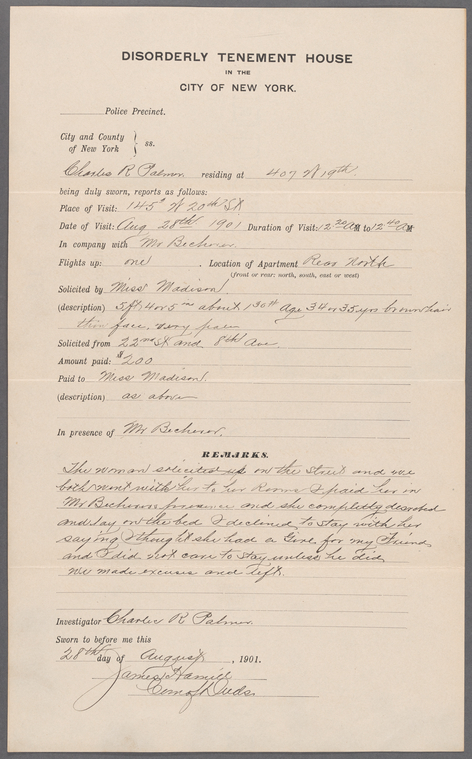 DISORDERLY TENEMENT HOUSE
IN THE
CITY OF NEW YORK.
Police Precinct.
City and County
of New York } ss.
Charles R Palmer residing at 407 W 19th.
being duly sworn, reports as follows:
Place of Visit: 145 W 20th St
Date of Visit: Aug 28th 1901 Duration of Visit: 12 20 AM to 12 40 AM
In company with Mr Becherer.
Flights up: one . Location of Apartment Rear North
(front or rear: north, south, east or west)
Solicited by Miss Madison
(description) 5 ft 4 or 5 about 130 Age 34 or 35 yrs brown hair
thin face. very
Solicited from 22nd St and 8th Ave.
Amount paid: $2.00
Paid to Miss Madison.
(description) as above
In presence of Mr Becherer.
REMARKS.
The woman solicited us on the street and we
both went with her to her Rooms I paid her in
Mr Becherers presence and she completely disrobed
and lay on the bed I declined to stay with her
saying I thought she had a Girl for my Friend
and I did not care to stay unless he did
we made excuses and left.
Investigator Charles R Palmer.
Sworn to before me this
28th day of August , 1901.
James Hamill
Com of Deeds